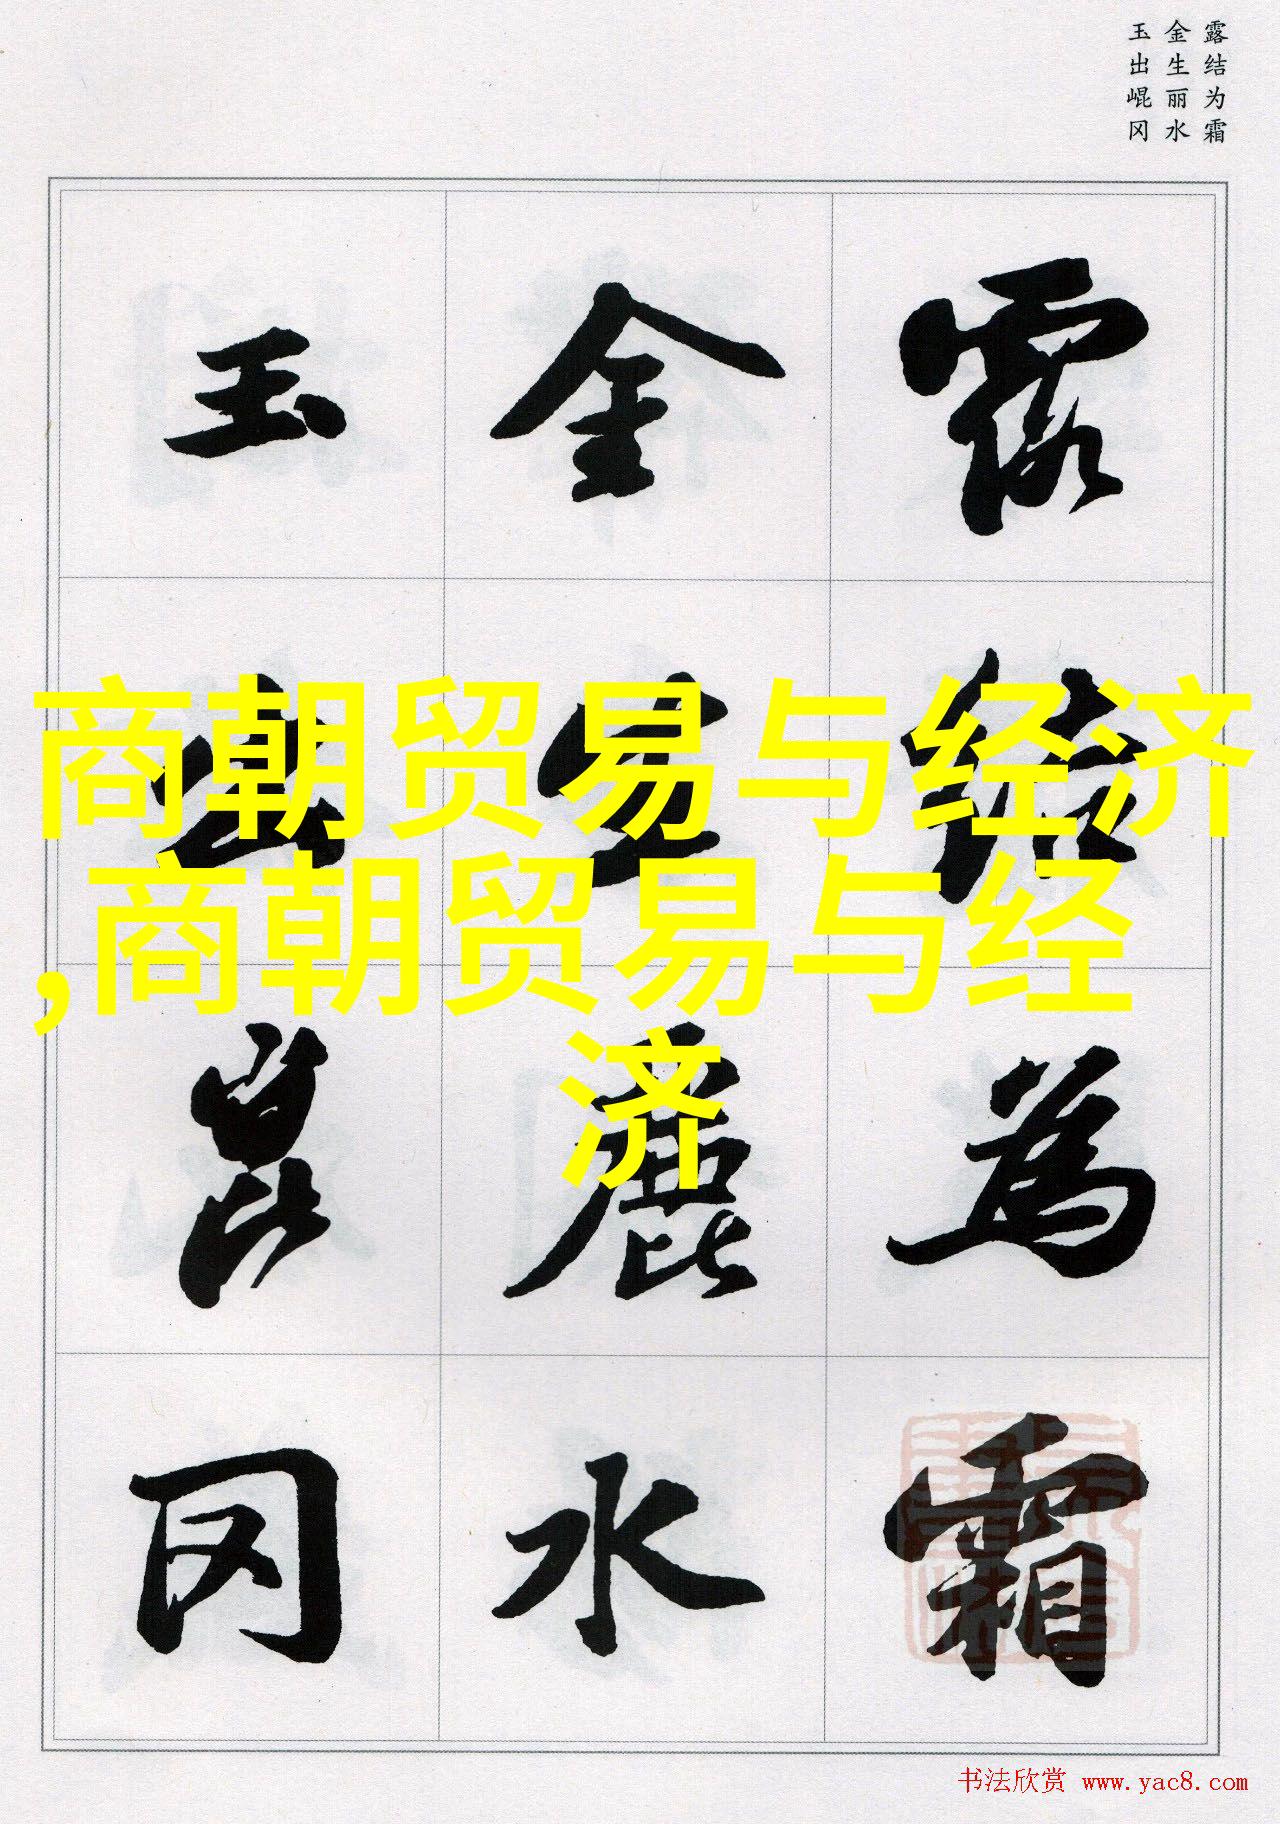 露结为霜
金生丽水
玉出崐冈
露结為霜
金生麗水
玉出崑冈
商朝贸易与经济
,商朝贸易与经
济
书法欣赏 www.yac8.com